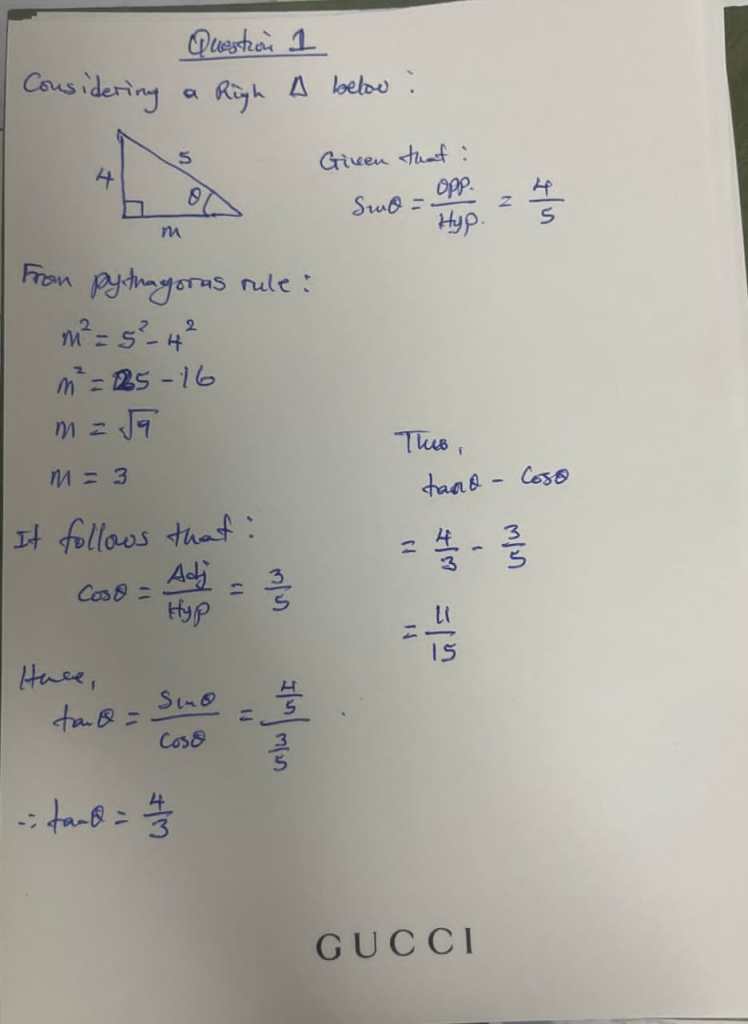 Question 1
Considering a Righ Δ below :
4
5
θ
m
Given that :
Sinθ = Opp. / Hyp. = 4/5
From pythagoras rule :
m² = 5² - 4²
m² = 25 - 16
m = √9
m = 3
It follows that :
Cosθ = Adj / Hyp = 3/5
Hence,
tanθ = Sinθ / Cosθ = (4/5) / (3/5) .
∴ tanθ = 4/3
Thus,
tanθ - Cosθ
= 4/3 - 3/5
= 11/15
GUCCI